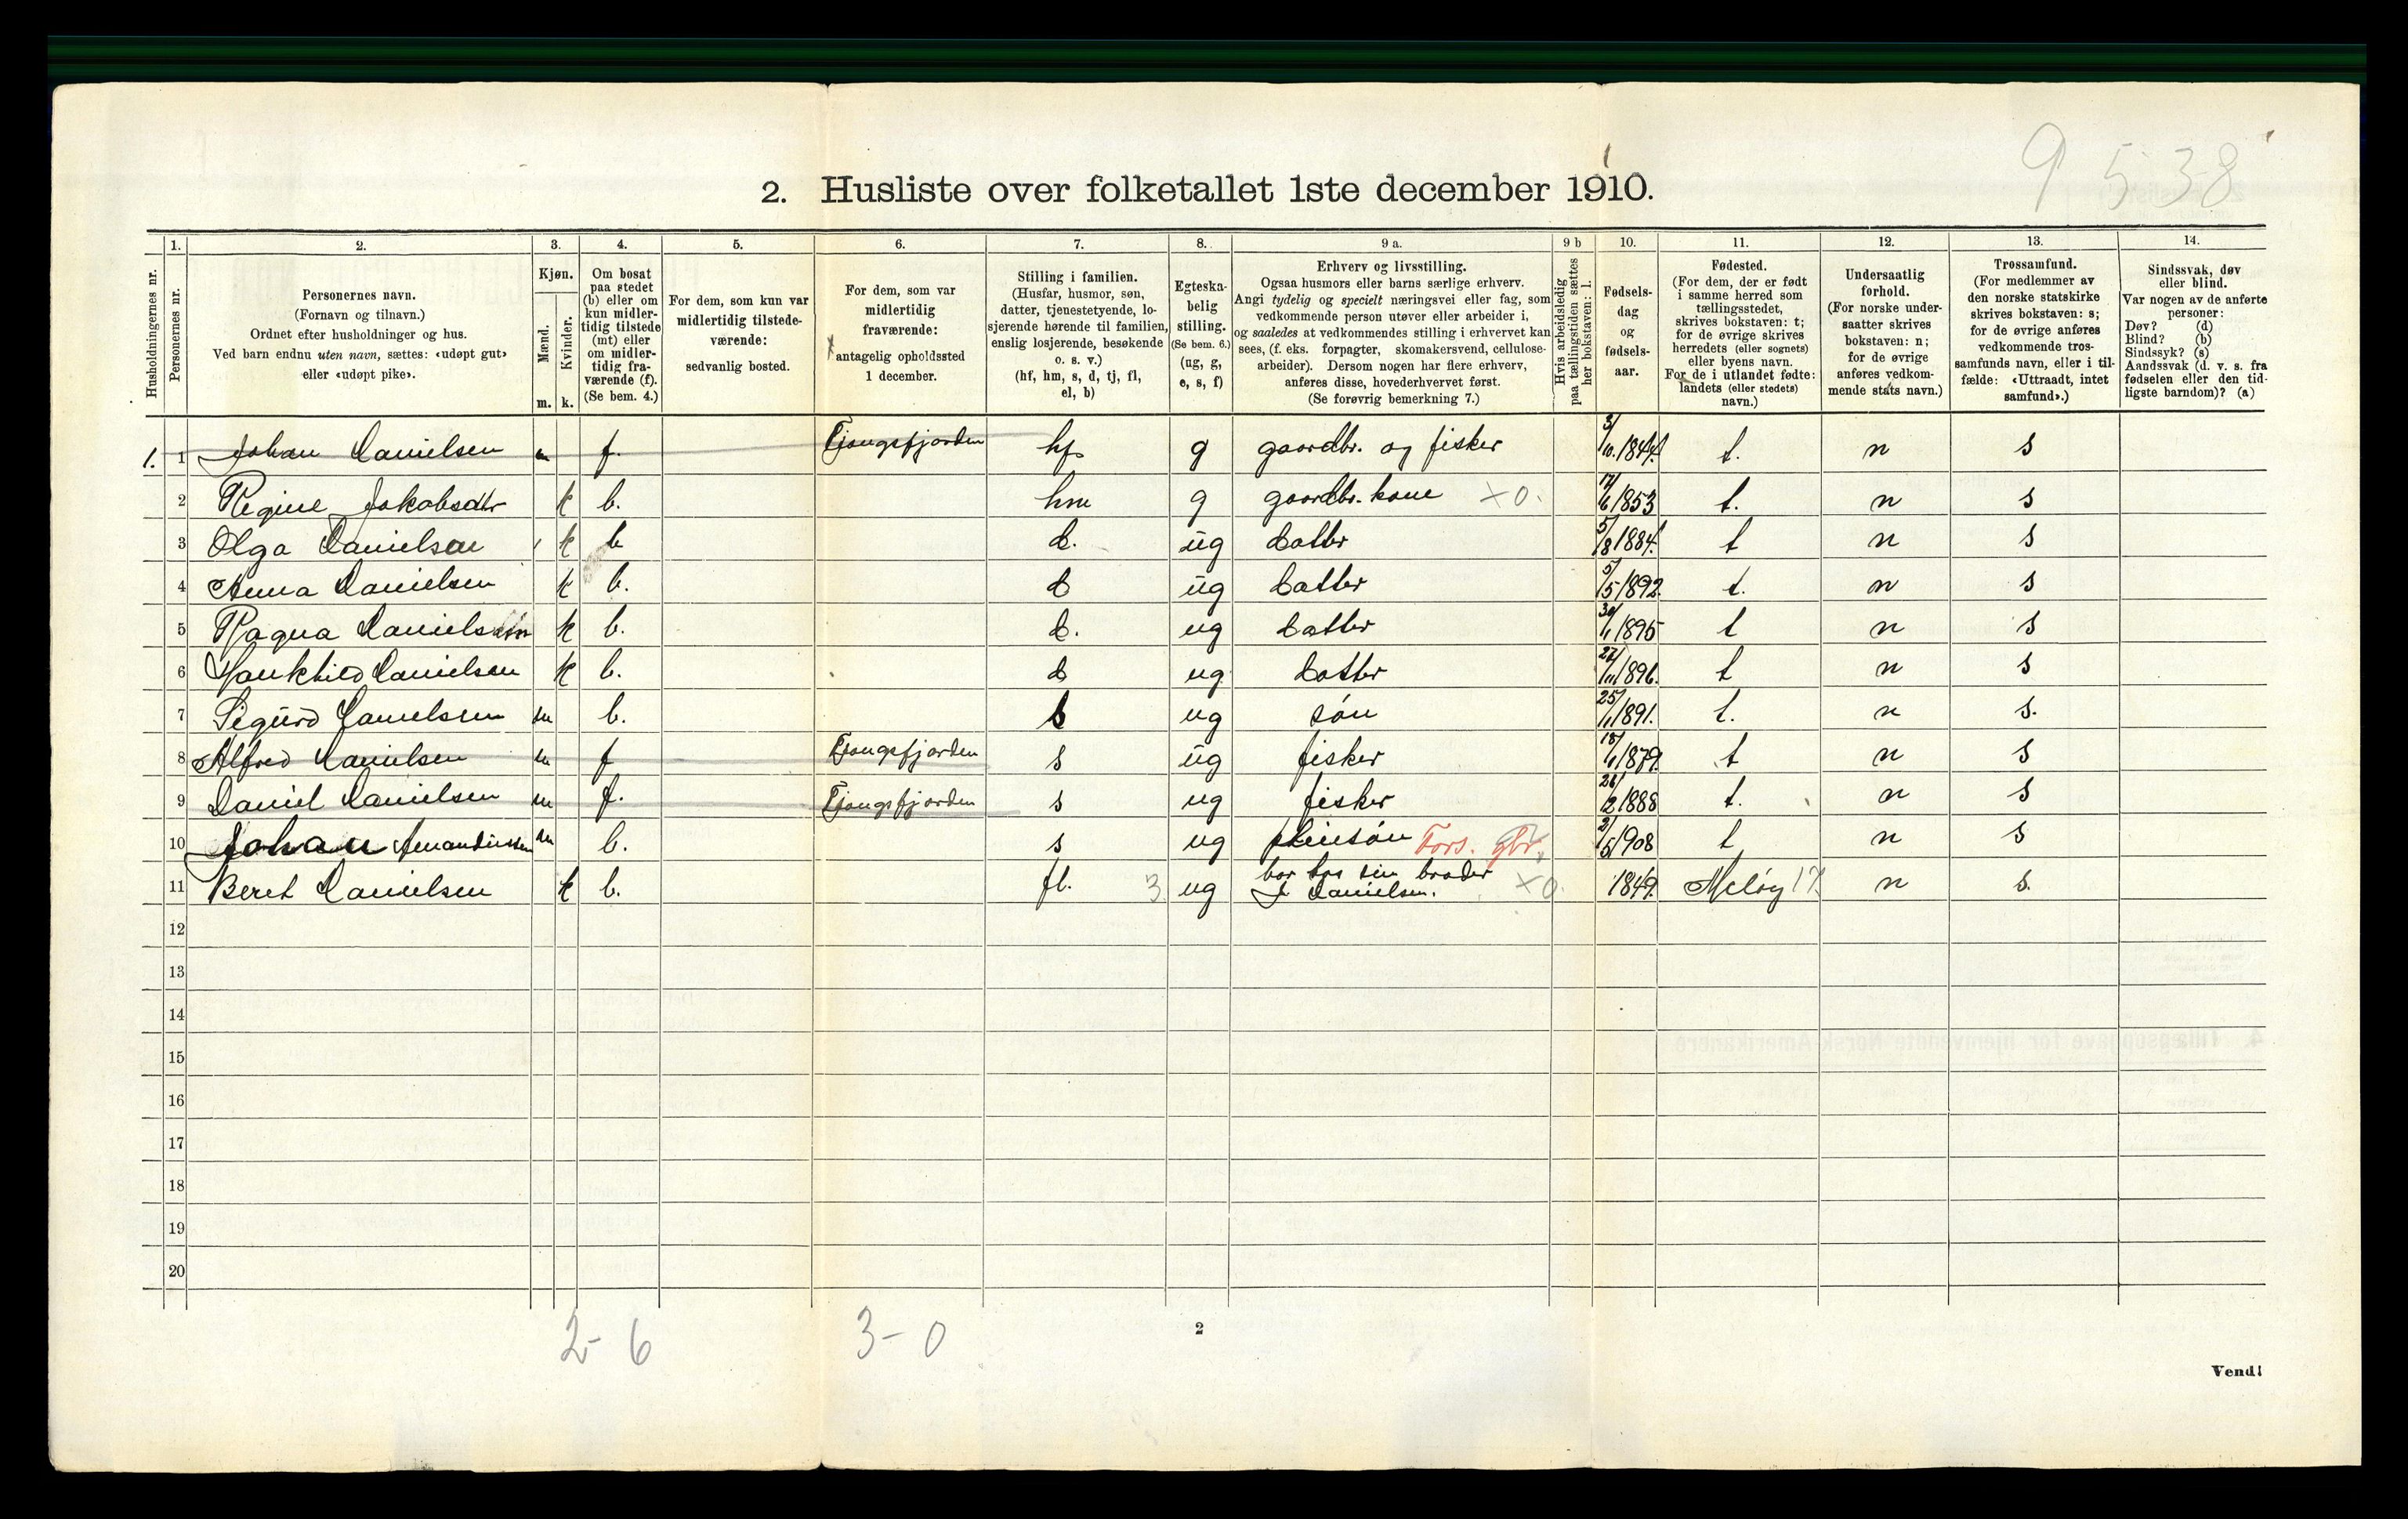 9 5 38
2. Husliste over folketallet 1ste december 1910.
Husholdningernes nr.
1. Personernes nr.
2. Personernes navn. (Fornavn og tilnavn.) Ordnet efter husholdninger og hus. Ved barn endnu uten navn, sættes: «udøpt gut» eller «udøpt pike».
3. Kjøn. Mænd. m. Kvinder. k.
4. Om bosat paa stedet (b) eller om kun midler-tidig tilstede (mt) eller om midler-tidig fra-værende (f). (Se bem. 4.)
5. For dem, som kun var midlertidig tilstede-værende: sedvanlig bosted.
6. For dem, som var midlertidig fraværende: antagelig opholdssted 1 december.
7. Stilling i familien. (Husfar, husmor, søn, datter, tjenestetyende, lo-sjerende hørende til familien, enslig losjerende, besøkende o. s. v.) (hf, hm, s, d, tj, fl, el, b)
8. Egteska-belig stilling. (Se bem. 6.) (ug, g, e, s, f)
9 a. Erhverv og livsstilling. Ogsaa husmors eller barns særlige erhverv. Angi tydelig og specielt næringsvei eller fag, som vedkommende person utøver eller arbeider i, og saaledes at vedkommendes stilling i erhvervet kan sees, (f. eks. forpagter, skomakersvend, cellulose-arbeider). Dersom nogen har flere erhverv, anføres disse, hovederhvervet først. (Se forøvrig bemerkning 7.)
9 b Hvis arbeidsledig paa tællingstiden sættes her bokstaven: l.
10. Fødsels-dag og fødsels-aar.
11. Fødested. (For dem, der er født i samme herred som tællingsstedet, skrives bokstaven: t; for de øvrige skrives herredets (eller sognets) eller byens navn. For de i utlandet fødte: landets (eller stedets) navn.)
12. Undersaatlig forhold. (For norske under-saatter skrives bokstaven: n; for de øvrige anføres vedkom-mende stats navn.)
13. Trossamfund. (For medlemmer av den norske statskirke skrives bokstaven: s; for de øvrige anføres vedkommende tros-samfunds navn, eller i til-fælde: «Uttraadt, intet samfund».)
14. Sindssvak, døv eller blind. Var nogen av de anførte personer: Døv? (d) Blind? (b) Sindssyk? (s) Aandssvak (d. v. s. fra fødselen eller den tid-ligste barndom)? (a)
1. 1 Johan Danielsen m f. Tjongsfjorden hf. g gaardbr. og fisker 3/10.1844 t. n s
2 Regine Jakobsdtr k b. hm g gaardbr. kone X 0. 17/6 1853 t. n s
3 Olga Danielsen k b d. ug datter 5/8 1884 t n s
4 Anna Danielsen k b. d ug datter 5/5 1892. t. n s
5 Ragna Danielsen k b. d. ug datter 30/1 1895 t n s
6 Danielsen k b. d ug datter 27/11 1896. t n s
7 Sigurd Danielsen m b. s ug søn 25/1 1891. t. n s.
8 Alfred Danielsen m f Tjongsfjorden s ug fisker 18/1 1879. t n s
9 Daniel Danielsen m f. Tjongsfjorden s ug fisker 26/2 1888 t. n s
10 Johan m b. s ug pleiesøn Fors. gbr. 2/5 1908 t n s
11 Beret Danielsen k b. fl. 3 ug bor hos sin broder J Danielsen. X 0. 1849. Meløy 17. n s.
12
13
14
15
16
17
18
19
20
2 - 6 3 - 0
2
Vend!